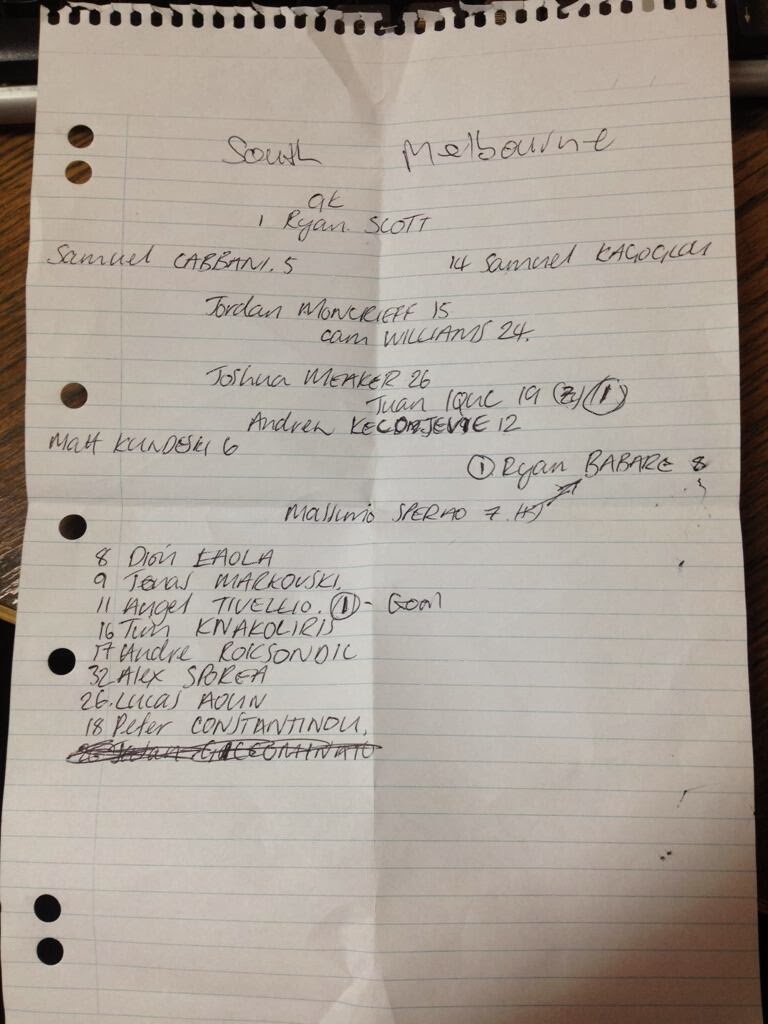 South Melbourne
GK
1 Ryan SCOTT
Samuel CABBANI. 5 14 Samuel
Jordan MONCRIEFF 15
cam WILLIAMS 24.
Joshua MEAKER 26
19 1
Andrew 12
Matt KUNDESKI 6
1 Ryan BABARE 8
Massimo 7
8 Dion
9 MARKOVSKI.
11 Angel TIVELLIO. 1 - Goal
16 Tim KNAKOLIRIS
17 Andre ROKSONDIC
32 Alex SBREA
26. Lucas AOUN
18 Peter CONSTANTINOU.